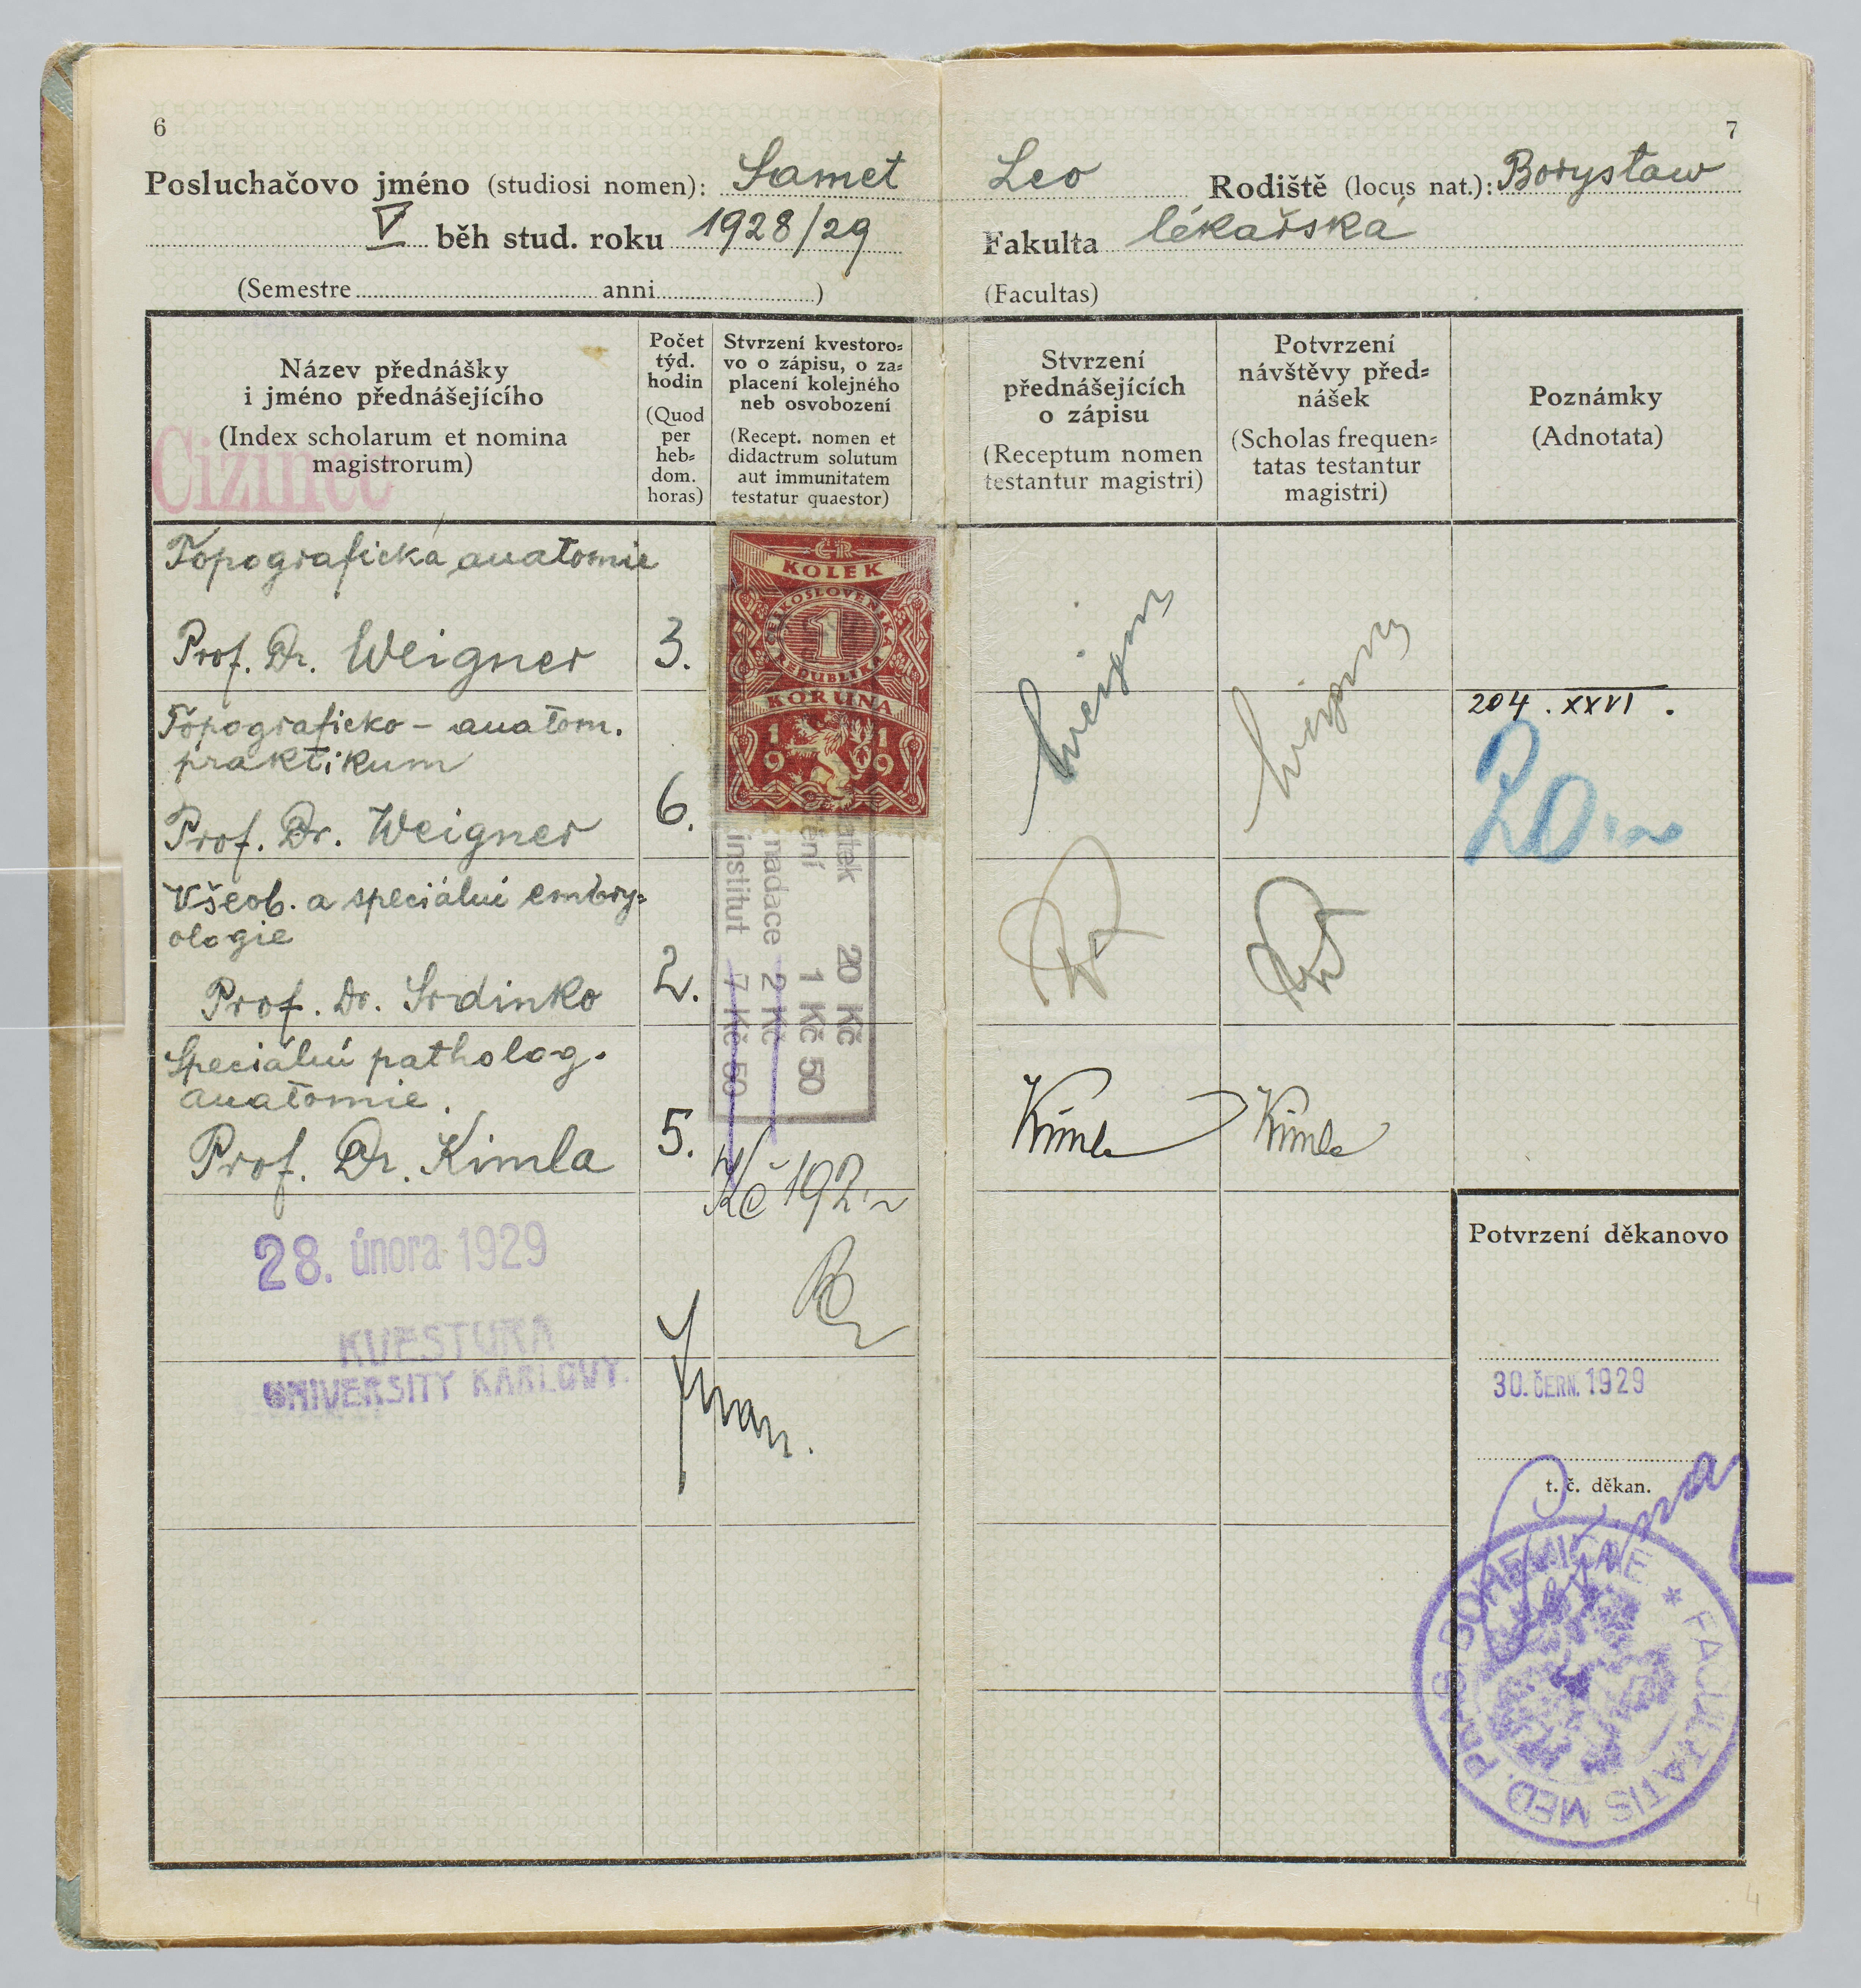 6
7
Posluchačovo jméno (studiosi nomen): Samet Leo Rodiště (locus nat.): Borysław
V běh stud. roku 1928/29 Fakulta lékařská
(Semestre anni ) (Facultas)
Název přednášky
i jméno přednášejícího
(Index scholarum et nomina
magistrorum)
Cizinec
Počet
týd.
hodin
(Quod
per
heb=
dom.
horas)
Stvrzení kvestoro=
vo o zápisu, o za=
placení kolejného
neb osvobození
(Recept. nomen et
didactrum solutum
aut immunitatem
testatur quaestor)
Stvrzení
přednášejících
o zápisu
(Receptum nomen
testantur magistri)
Potvrzení
návštěvy před=
nášek
(Scholas frequen=
tatas testantur
magistri)
Poznámky
(Adnotata)
Topografická anatomie
Prof. Dr. Weigner 3.
Topograficko – anatom.
praktikum
Prof. Dr. Weigner 6.
Všeob. a speciální embry=
ologie
Prof. Dr. Srdinko 2.
Speciální patholog.
anatomie.
Prof. Dr. Kimla 5.
ČR
KOLEK
ČESKOSLOVENSKÁ
1
REPUBLIKA
KORUNA
19 19
atek 20 Kč
tění 1 Kč 50
nadace 2 Kč
institut 7 Kč 50
Kč 192
Weigner
Weigner
Kimla
Kimla
204. XXVI.
20
28. února 1929
KVESTURA
UNIVERSITY KARLOVY.
Potvrzení děkanovo
30. ČERN. 1929
t. č. děkan.
FACULTATIS MED. PRAG. BOHEMICAE *
4